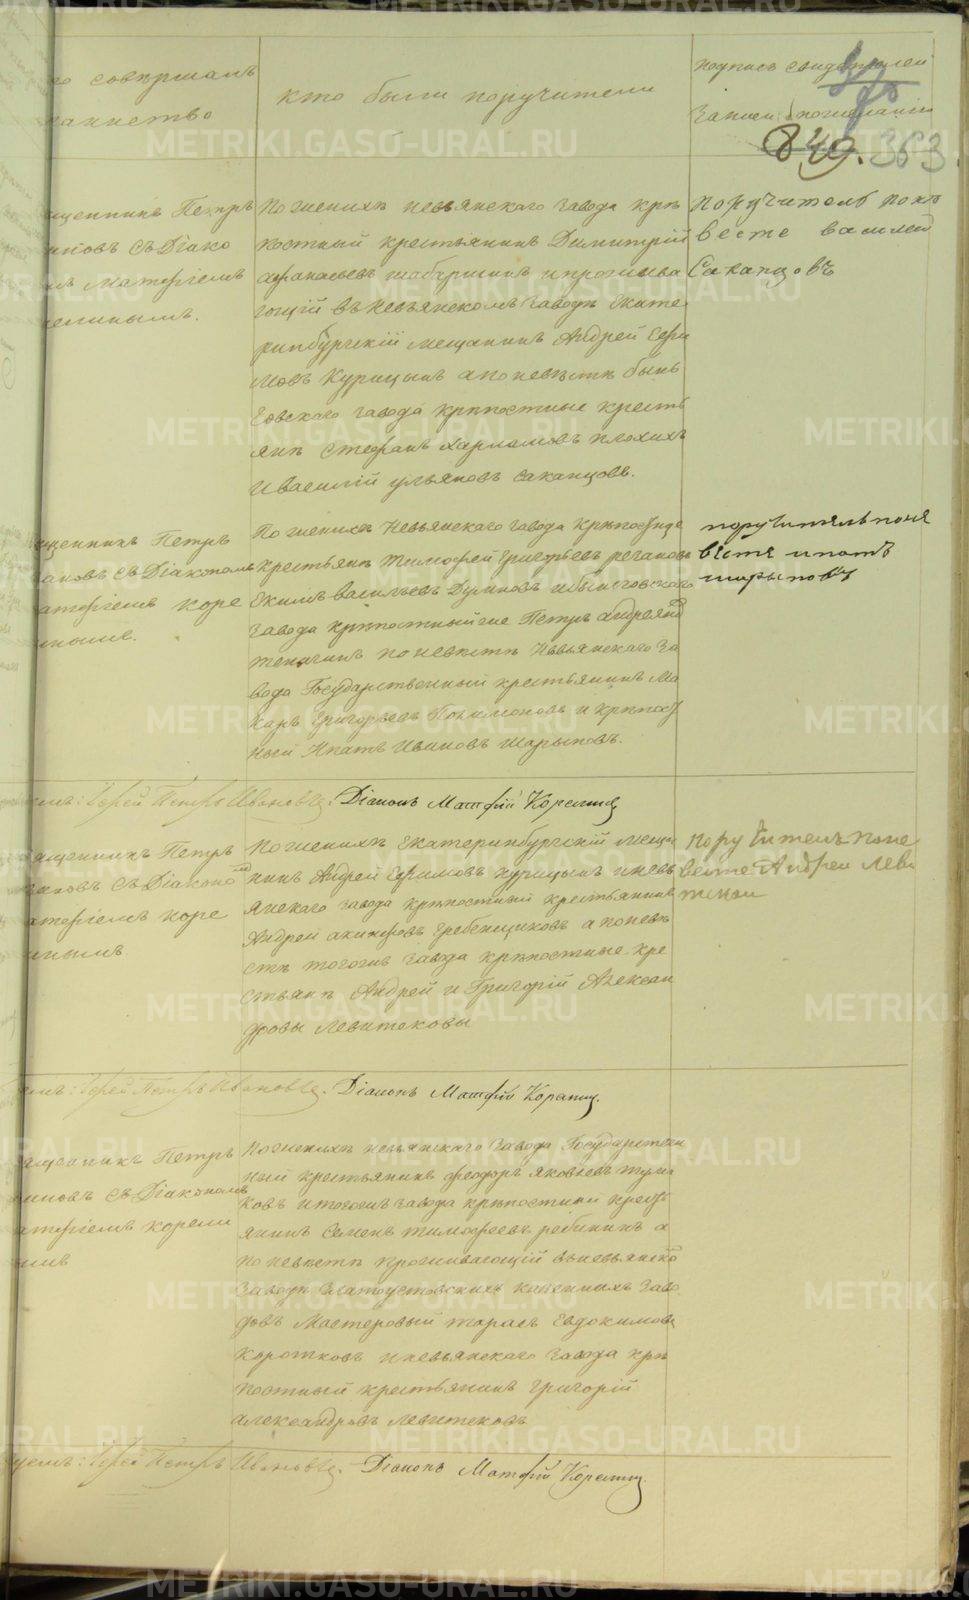 го совершалъ
таинство
кто были поручители
подпись свидетелей
записи
849. 363
ященникъ Петръ
ановъ съ Діако
мъ матфіемъ
релинымъ.
По женихѣ невьянскаго завода крѣ
постный крестьянинъ Димитрій
афанасьевъ шабаршинъ и прожива
ющій въ невьянскомъ заводѣ Екате
ринбургскій мещанинъ Андрей Ефи
мовъ Курицынъ а по невѣстѣ бынь
говскаго завода крѣпостные кресть
янѣ стефанъ харламовъ плохихъ
и василій ульяновъ саканцовъ.
поручителъ понѣ
весте василей
Саканцовъ
ященникъ Петръ
ановъ съ Діакономъ
атфіемъ коре
иномъ.
По женихѣ Невьянскаго завода
крестьянѣ тимофей григорьевъ
Екимъ васильевъ и быньговскаго
завода крѣпостный же Петръ андреяновъ
по невѣстѣ Невьянскаго За
вода Государственный крестьянинъ Ма
каръ григорьевъ и крѣпост
ный Ипатъ Ивановъ шарыповъ.
поручитель поне
вѣсте ипатъ
шарыповъ
Іерей Петръ Ивановъ. Діаконъ Матфій Корелинъ
ященникъ Петръ
ановъ съ Діакономъ
атфіемъ коре
инымъ
По женихѣ Екатеринбургскій меща
нинъ Андрей Ефимовъ курицынъ и невь
янскаго завода крѣпостный крестьянинъ
Андрей акинфовъ гребенщиковъ а по невѣ
стѣ тогожъ завода крѣпостные кре
стьянѣ Андрей и Григорій Алексан
дровы левитековы
поручителъ поне
весте Андреи Леви
текои
Іерей Петръ Ивановъ. Діаконъ Матфій Корелинъ.
ященникъ Петръ
ановъ съ Діакономъ
атфіемъ корели
нымъ
По женихѣ невьянскаго завода Государствен
ный крестьянинъ феодоръ яковлевъ тума
ковъ и тогожъ завода крѣпостный крест
янинъ Семенъ тимофеевъ рябининъ а
по невѣстѣ проживающій въ невьянско
заводѣ златоустовскихъ казенныхъ заво
довъ Мастеровый тарасъ Евдокимовъ
коротковъ и невьянскаго завода крѣ
постный крестьянинъ григорій
александровъ левитековъ
Іерей Петръ Ивановъ. Діаконъ Матфій Корелинъ.
METRIKI.GASO-URAL.RU